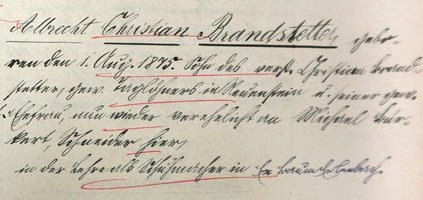 Albrecht Christian Brandstetter, gebo-
ren den 1. Aug. 1875. Sohn des verst. Christian Brand-
stetter, gew. Taglöhners in Neuenstein u. seiner gew.
Ehefrau, nun wieder verehelicht an Michael Bür-
kert, Schneider hier,
in der Lehre als Schuhmacher in